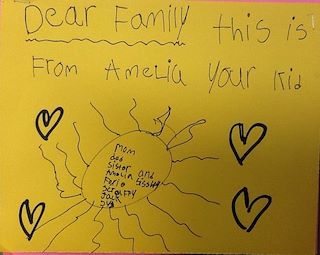 Dear Family this is
From Amelia Your Kid
Mom
dad
Sister
Amelia and
Jack